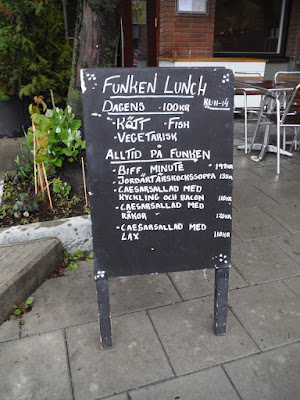 FUNKEN LUNCH
DAGENS · 100KR KL:11-14
· KÖTT · FISH
· VEGETARISK
ALLTID PÅ FUNKEN
· BIFF MINUTE
· JORDÄRTSKOCKSSOPPA
· CAESARSALLAD MED
KYCKLING OCH BACON 110KR
· CAESARSALLAD MED
RÄKOR 120KR
· CAESARSALLAD MED
LAX 110KR